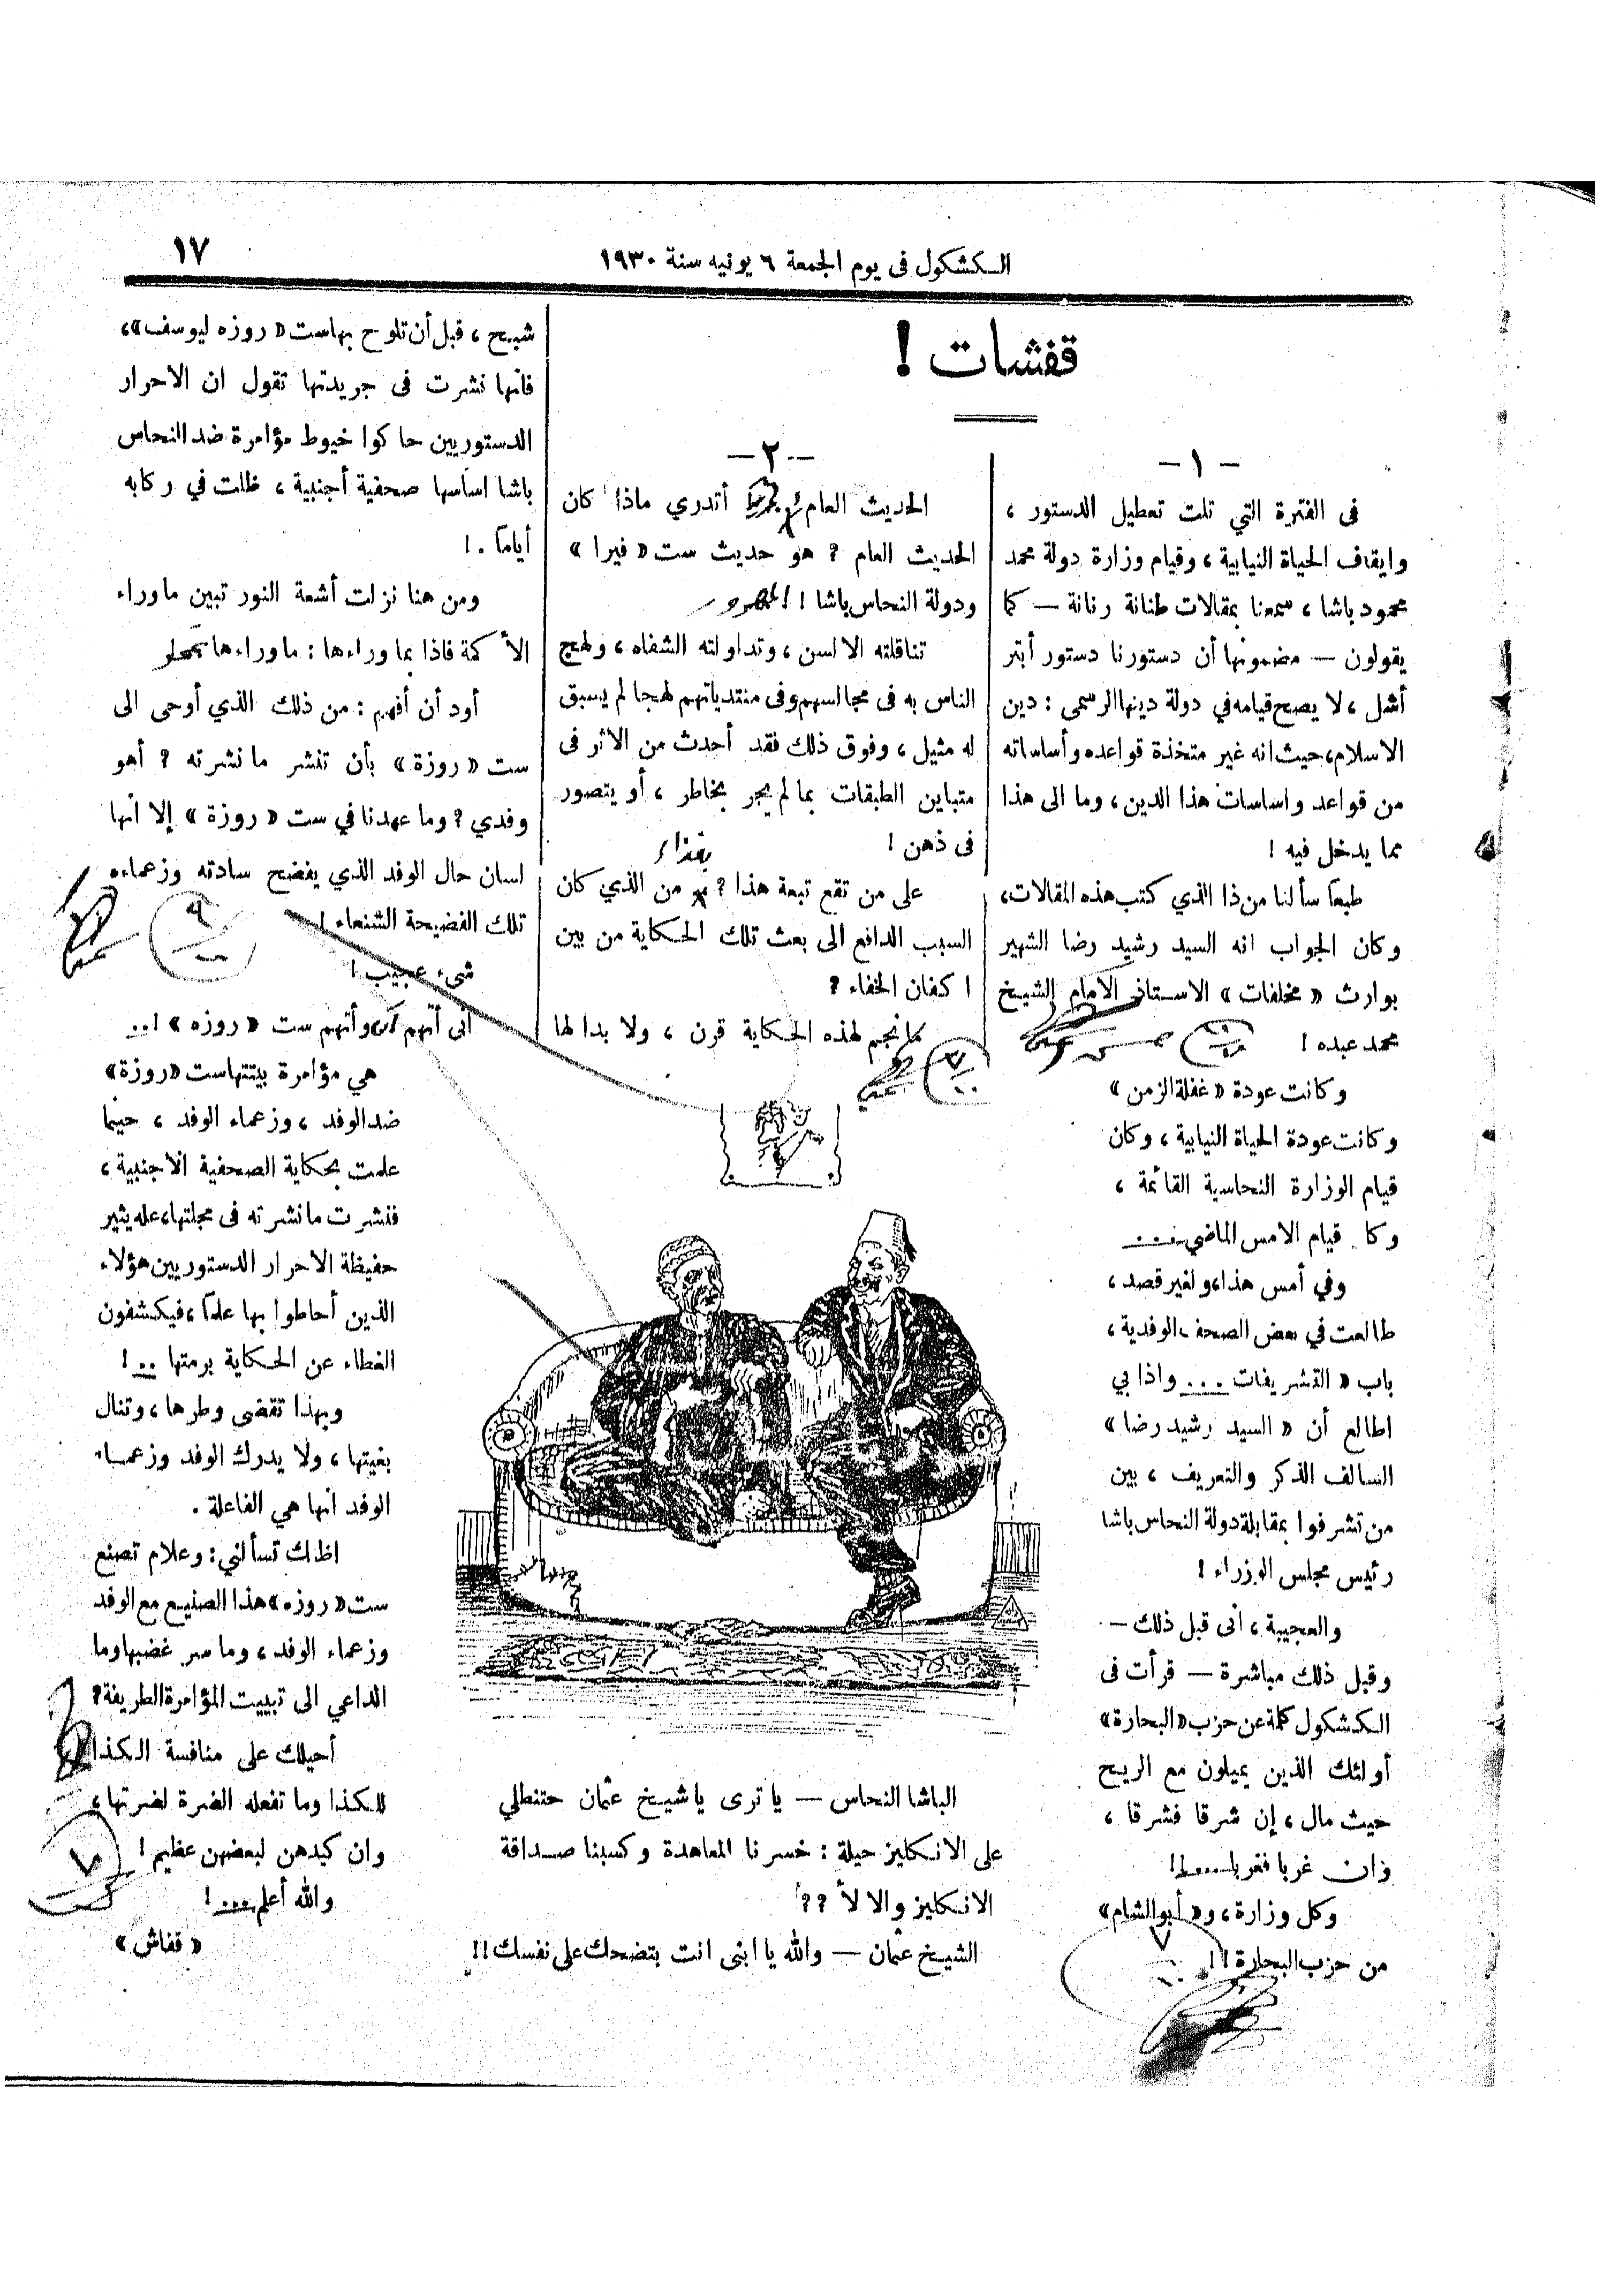 الكشكول فى يوم الجمعة ٦ يونيه سنة ١٩٣٠
١٧
قفشات !
— ١ —
فى الفترة التي تلت تعطيل الدستور ،
وايقاف الحياة النيابية ، وقيام وزارة دولة محمد
محمود باشا ، سمعنا بمقالات طنانة رنانة — كما
يقولون — مضمونها أن دستورنا دستور أبتر
أشل ، لا يصح قيامه في دولة دينها الرسمى : دين
الاسلام، حيث انه غير متخذة قواعده وأساساته
من قواعد واساسات هذا الدين ، وما الى هذا
مما يدخل فيه !
طبعاً سألنا من ذا الذي كتب هذه المقالات،
وكان الجواب انه السيد رشيد رضا الشهير
بوارث « مخلفات » الاستاذ الامام الشيخ
محمد عبده !
وكانت عودة « غفلة الزمن »
وكانت عودة الحياة النيابية ، وكان
قيام الوزارة النحاسية القائمة ،
وكا قيام الامس الماضي ...
وفي أمس هذا، ولغير قصد ،
طالعت في بعض الصحف الوفدية ،
باب « التشريفات ... واذا بي
اطالع أن « السيد رشيد رضا »
السالف الذكر والتعريف ، بين
من تشرفوا بمقابلة دولة النحاس باشا
رئيس مجلس الوزراء !
والعجيبة ، أنى قبل ذلك —
وقبل ذلك مباشرة — قرأت فى
الكشكول كلمة عن حزب «البحارة»
أولئك الذين يميلون مع الريح
حيث مال ، إن شرقا فشرقا ،
وان غربا فغربا ... !
وكل وزارة ، و« أبو الشام »
من حزب البحارة !!
٧
— ٢ —
الحديث العام أتدري ماذا كان
الحديث العام ؟ هو حديث ست « فيرا »
ودولة النحاس باشا !
تناقلته الالسن ، وتداولته الشفاه ، ولهج
الناس به فى مجالسهم وفى منتدياتهم لهجا لم يسبق
له مثيل ، وفوق ذلك فقد أحدث من الاثر فى
متباين الطبقات بما لم يجر بخاطر ، أو يتصور
فى ذهن !
على من تقع تبعة هذا ؟ من الذي كان
السبب الدافع الى بعث تلك الحكاية من بين
اكفان الخفاء ؟
لم نجم لهذه الحكاية قرن ، ولا بدا لها
شبح ، قبل أن تلوح بها ست « روزه ليوسف »،
فانها نشرت فى جريدتها تقول ان الاحرار
الدستوريين حاكوا خيوط مؤامرة ضد النحاس
باشا اساسها صحفية أجنبية ، ظلت في ركابه
أياماً . !
ومن هنا نزلت أشعة النور تبين ماوراء
الأكمة فاذا بما وراءها : ماوراءها
أود أن أفهم : من ذلك الذي أوحى الى
ست « روزة » بأن تنشر مانشرته ؟ أهو
وفدي ؟ وما عهدنا في ست « روزة » إلا أنها
لسان حال الوفد الذي يفضح سادته وزعماءه
تلك الفضيحة الشنعاء !
شىء عجيب !
أنى أتهم وأتهم ست « روزه » !..
هي مؤامرة بيتتها ست «روزة»
ضد الوفد ، وزعماء الوفد ، حينما
علمت بحكاية الصحفية الاجنبية ،
فنشرت مانشرته فى مجلتها، عله يثير
حفيظة الاحرار الدستوريين هؤلاء
الذين أحاطوا بها علماً ، فيكشفون
الغطاء عن الحكاية برمتها .. !
وبهذا تقضى وطرها ، وتنال
بغيتها ، ولا يدرك الوفد وزعماء
الوفد انها هي الفاعلة .
اظنك تسألني : وعلام تصنع
ست « روزه » هذا الصنيع مع الوفد
وزعماء الوفد ، وما سر غضبها وما
الداعي الى تبييت المؤامرة الطريفة ؟
أحيلك على منافسة الكذا
للكذا وما تفعله الضرة لضرتها ،
وان كيدهن لبعضهن عظيم !
والله أعلم ... !
« قفاش »
الباشا النحاس — يا ترى يا شيخ عثمان حتنطلي
على الانكليز حيلة : خسرنا المعاهدة وكسبنا صداقة
الانكليز والا لأ ؟؟
الشيخ عثمان — والله يا ابنى انت بتضحك على نفسك !!